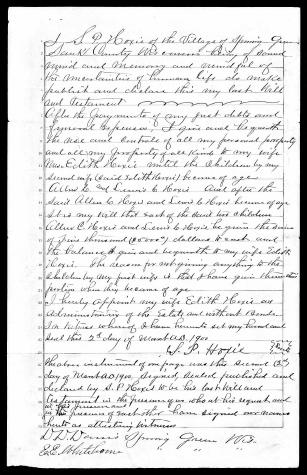 I S. P. Hoxie of the Village of Spring Green
Sauk County Wisconsin being of sound
mind and memory and mindful of
the uncertainties of human life do make
publish and declare this my last Will
and Testament
After the payments of my just debts and
funeral expenses, I give and bequeath
the use and control of all my personal property
and all my property and to my wife
Mrs Edith Hoxie until the children by my
second wife (said Edith Hoxie) become of age
Allen C. and Lewis C. Hoxie And after the
said Allen C. Hoxie and Lewis C. Hoxie become of age
It is my will that each of the said two children
Allen C. Hoxie and Lewis C. Hoxie be given the sum
of five thousand dollars to each and
the balance I give and bequeath to my wife Edith
Hoxie. The reason for not giving anything to the
children by my first wife is that I have given them their
portion when they became of age
I hereby appoint my wife Edith Hoxie as
Administratrix of the Estate and without Bonds.
In Witness whereof I have hereunto set my hand and
seal this 2d day of March A.D. 1900
S. P. Hoxie
The above instrument of one page was this second (2d)
day of March 1900 signed, sealed published and
declared by S. P. Hoxie to be his last Will and
Testament in the presence of us who at his request and
in his presence and
in the presence of each other have signed our names
hereto as attesting witnesses
D. D. Davis Spring Green Wis.
E. E. " "